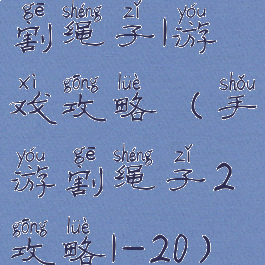 gē shéng zǐ yóu
割绳子1游
xì gōng lüè shǒu
戏攻略（手
yóu gē shéng zǐ
游割绳子2
gōng lüè
攻略1-20）